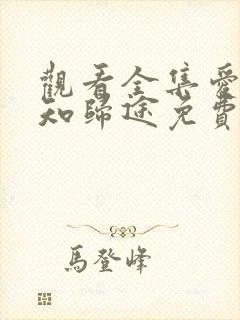 觀看全集愛
知歸途免費
馬登峰